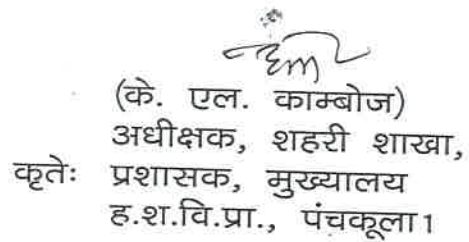 (के. एल. काम्बोज)
अधीक्षक, शहरी शाखा,
कृतेः प्रशासक, मुख्यालय
ह.श.वि.प्रा., पंचकूला1